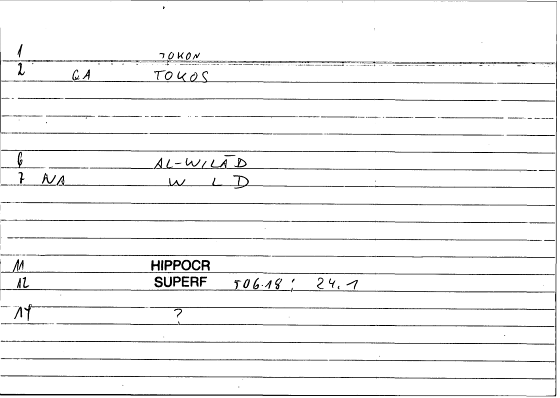 1 TOKON
2 GA TOKOS
6 AL-WILĀD
7 NA W L D
11 HIPPOCR
12 SUPERF 506.18; 24.1
14 ?